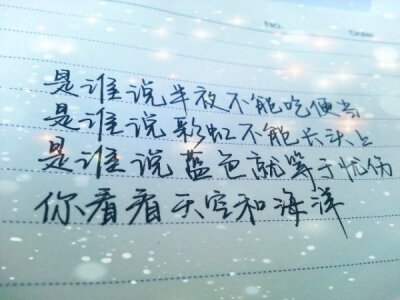 是谁说半夜不能吃便当
是谁说彩虹不能长头上
是谁说蓝色就等于忧伤
你看看天空和海洋